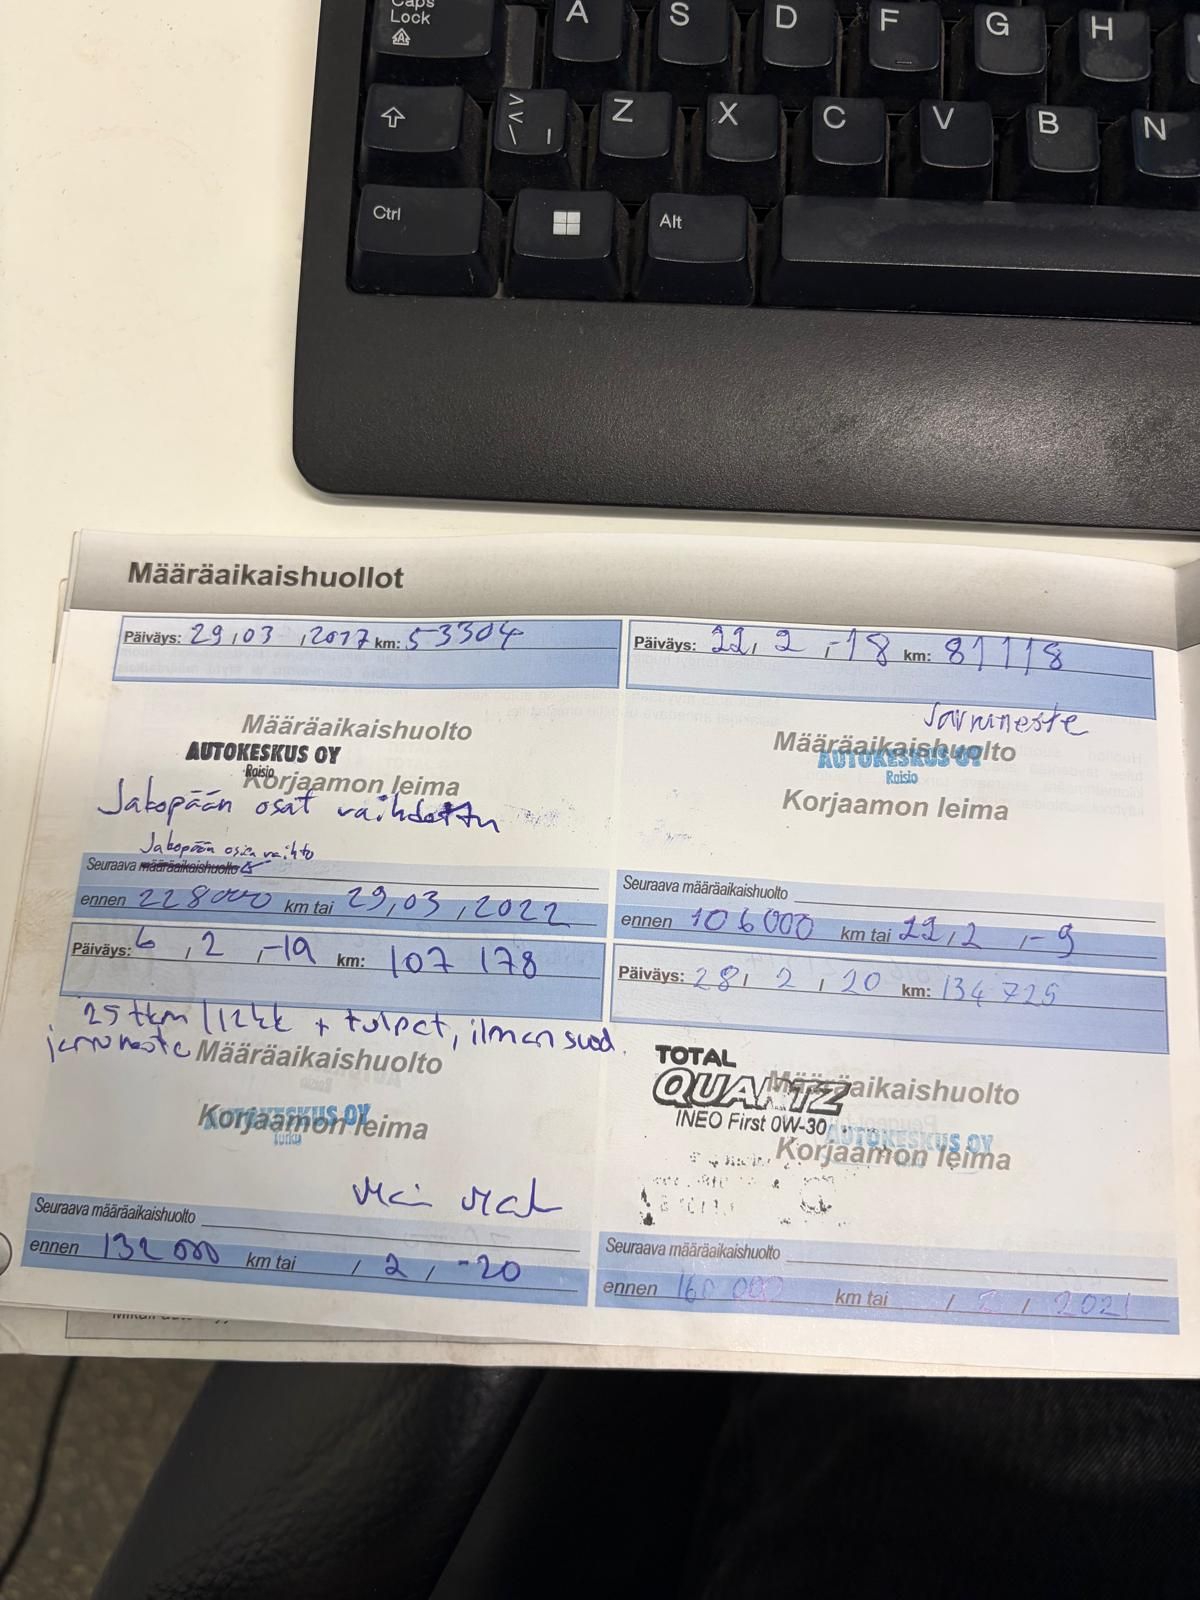 Caps
Lock
A S D F G H
Z X C V B N
Ctrl Alt
Määräaikaishuollot
Päiväys: 29,03,2017 km: 53304
Määräaikaishuolto
AUTOKESKUS OY
Raisio
Korjaamon leima
Jakopään osat vaihdettu
Jakopään osien vaihto
Seuraava määräaikaishuolto
ennen 228000 km tai 29,03,2022
Päiväys: 22, 2, -18 km: 81118
Jarruneste
Määräaikaishuolto
AUTOKESKUS OY
Raisio
Korjaamon leima
Seuraava määräaikaishuolto
ennen 106000 km tai 22,2,-9
Päiväys: 6,2,-19 km: 107 178
25 tkm / 12kk + tulpat, ilman suod.
jarruneste Määräaikaishuolto
AUTOKESKUS OY
Turku
Korjaamon leima
Seuraava määräaikaishuolto
ennen 132 000 km tai / 2, -20
Päiväys: 28, 2, 20 km: 134 725
TOTAL
QUARTZ
INEO First 0W-30
Määräaikaishuolto
AUTOKESKUS OY
Korjaamon leima
Seuraava määräaikaishuolto
ennen 160 000 km tai / 2, 2021